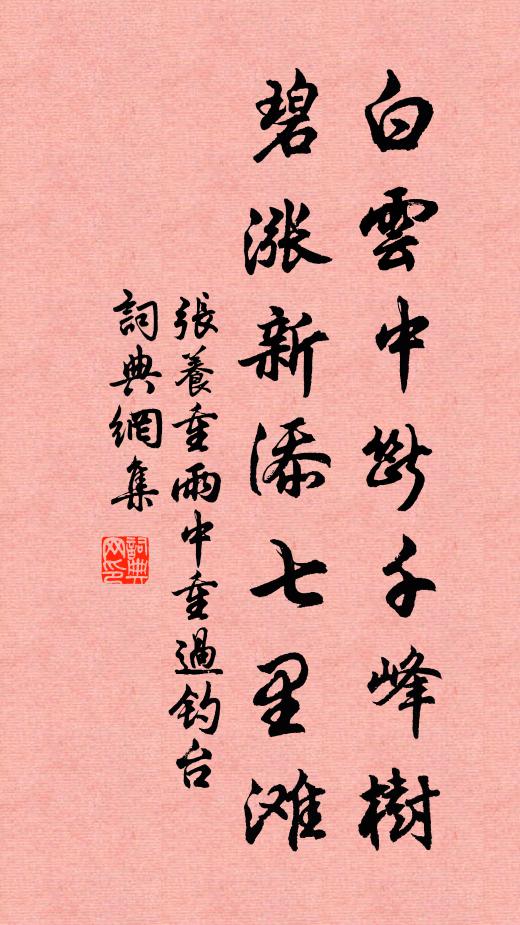 白雲中斷千峰樹
碧漲新添七里滩
張養重雨中重過釣台
詞典網集
詞典網印